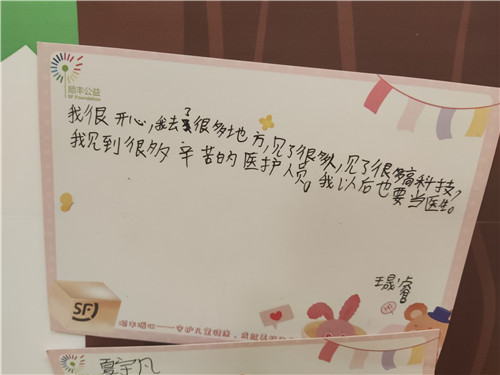 顺丰公益
SF Foundation
我很开心,我去了很多地方,见了很多人,见了很多高科技,
我见到很多辛苦的医护人员。我以后也要当医生。
王晟睿
Hi
SF
夏宇凡